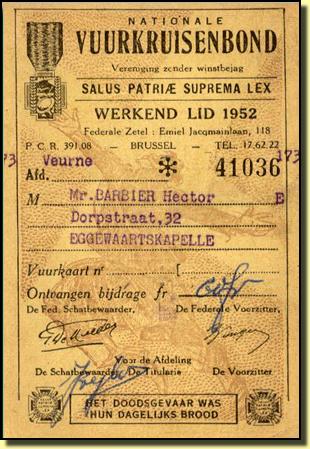 NATIONALE
VUURKRUISENBOND
Vereniging zonder winstbejag
SALUS PATRIÆ SUPREMA LEX
WERKEND LID 1952
Federale Zetel : Emiel Jacqmainlaan, 118
P.C.R. 391.08 — BRUSSEL — TEL. 17.62.22
173 Veurne 173
Afd. * 41036
M Mr. BARBIER Hector E
Dorpstraat, 32
EGGEWAARTSKAPELLE
Vuurkaart nr [
Ontvangen bijdrage fr
De Fed. Schatbewaarder, De Federale Voorzitter,
Voor de Afdeling
De Schatbewaarder, De Titularis De Voorzitter
HET DOODSGEVAAR WAS
HUN DAGELIJKS BROOD